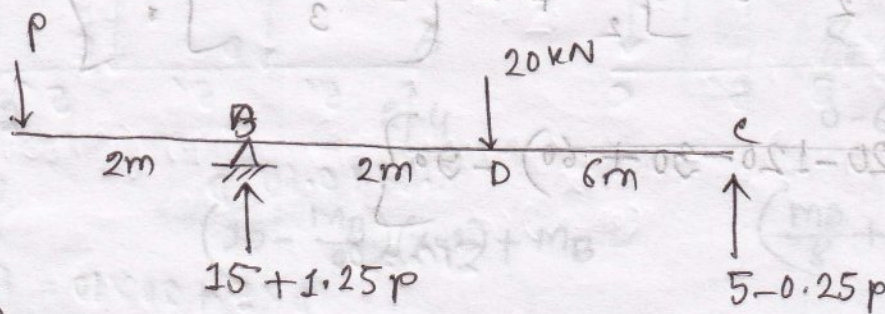 P
20 kN
B
C
2m
2m
D
6m
15+1.25p
5-0.25p